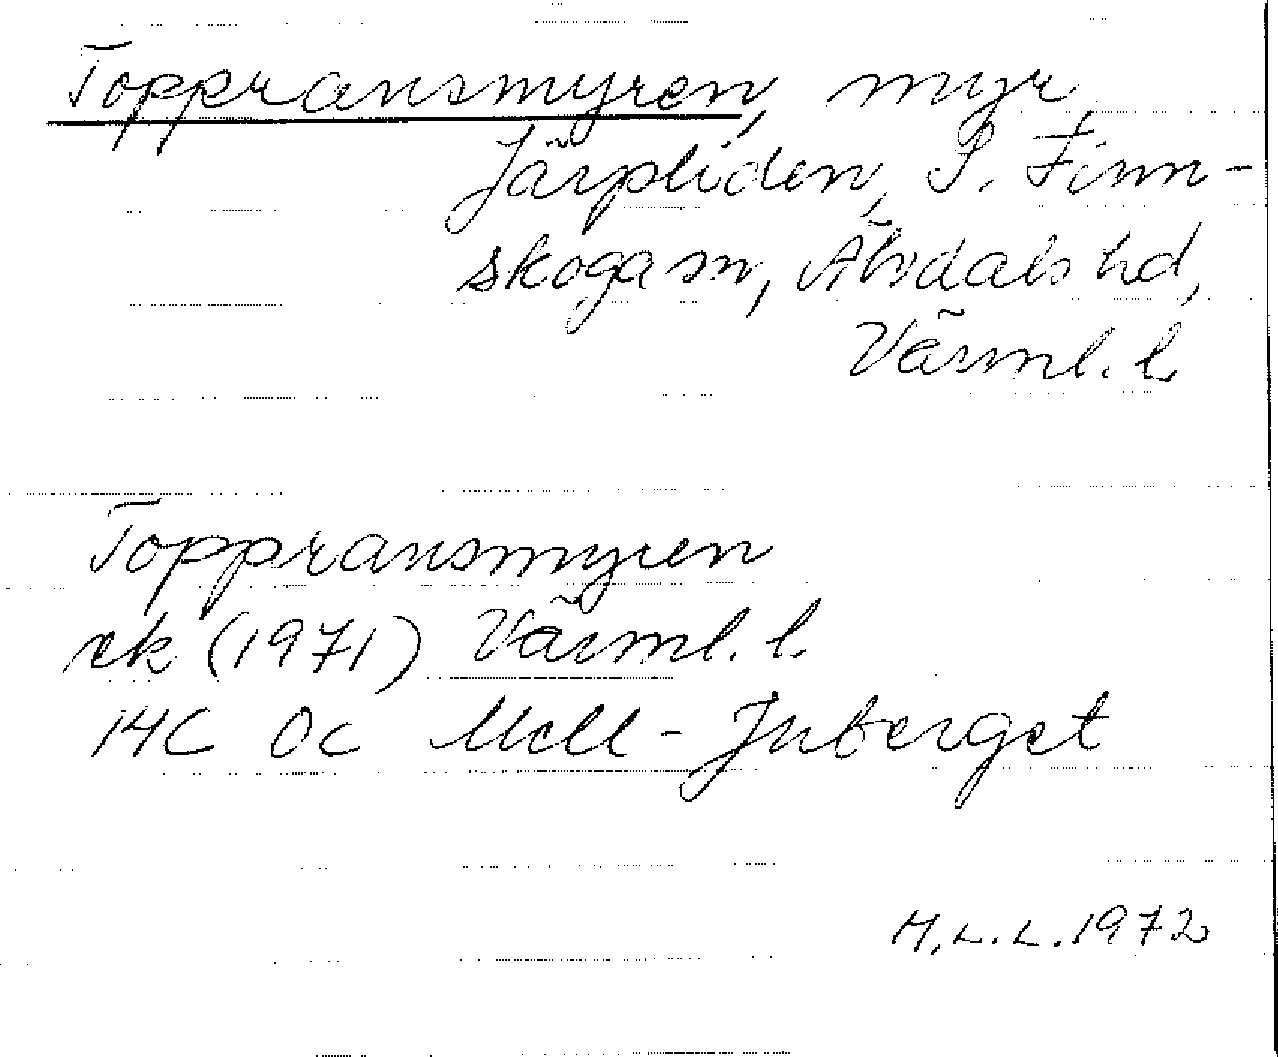 Toppransmyren, myr
Järpliden, S. Finn-
skoga sn, Älvdals hd,
Värml. l.
Toppransmyren
ek (1971) Värml. l.
14C 0c Mell-Juberget
M.L.L. 1972